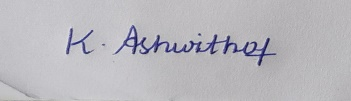 K. Ashwithof